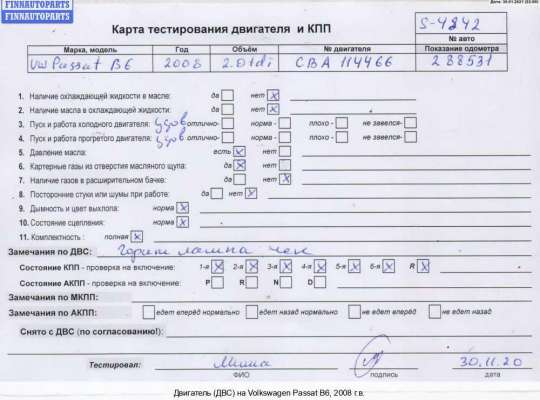 FINNAUTOPARTS
FINNAUTOPARTS
Дата: 30.01.2021 (22:09)
Карта тестирования двигателя и КПП
S-4842
№ авто
Марка, модель Год Объём № двигателя Показание одометра
VW Passat B6 2008 2.0 tdi CBA 114466 288531
1. Наличие охлаждающей жидкости в масле: да нет X
2. Наличие масла в охлаждающей жидкости: да нет X
3. Пуск и работа холодного двигателя: удов отлично- норма - плохо - не завелся-
4. Пуск и работа прогретого двигателя: удов отлично- норма - плохо - не завелся-
5. Давление масла: есть X нет
6. Картерные газы из отверстия масляного щупа: да X нет
7. Наличие газов в расширительном бачке: да нет X
8. Посторонние стуки или шумы при работе: да нет X
9. Дымность и цвет выхлопа: норма X
10. Состояние сцепления: норма X
11. Комплектность : полная X
Замечания по ДВС: горит лампа чек
Состояние КПП - проверка на включение: 1-я X 2-я X 3-я X 4-я X 5-я X 6-я X R X
Состояние АКПП - проверка на включение: P R N D
Замечания по МКПП:
Замечания по АКПП: едет вперёд нормально едет назад нормально не едет вперёд не едет назад
Снято с ДВС (по согласованию!):
Тестировал: Миша 30.11.20
ФИО подпись дата
Двигатель (ДВС) на Volkswagen Passat B6, 2008 г.в.